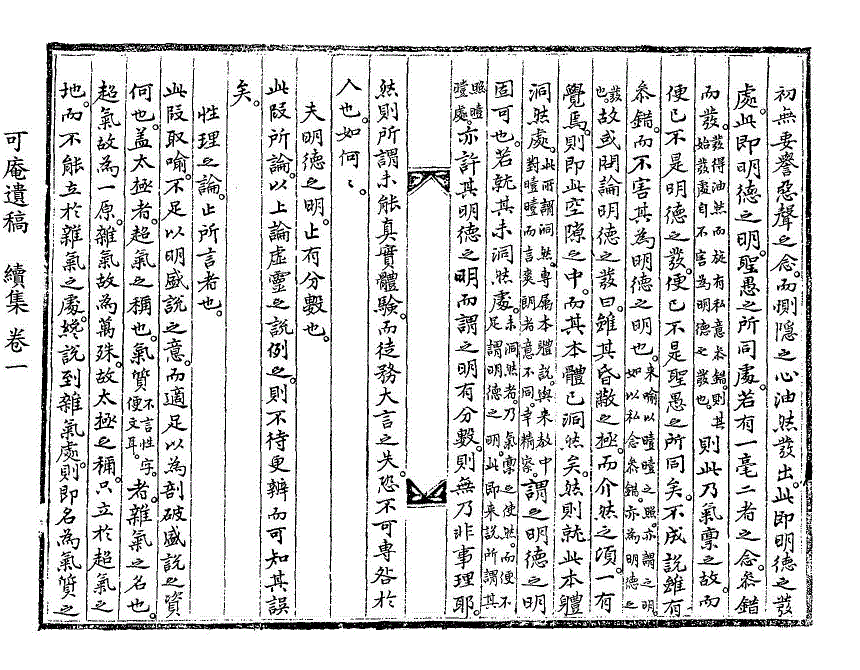 初無要譽惡聲之念。而惻隱之心油然發出。此即明德之發
處。此即明德之明。聖愚之所同處。若有一毫二者之念。參錯
而發。發得油然而旋有私意參錯。則其始發處自不害爲明德之發也。則此乃氣稟之故。而
便已不是明德之發。便已不是聖愚之所同矣。不成說雖有
參錯。而不害其爲明德之明也。來喻以曀曀之照。亦謂之明。如以私念參錯。亦爲明德之
發也。故或問論明德之發曰。雖其昏蔽之極。而介然之頃。一有
覺焉。則即此空隙之中。而其本體已洞然矣。然則就此本體
洞然處。此所謂洞然。專屬本體說。與來敎中對曀曀而言爽朗者意不同。幸精察。謂之明德之明
固可也。若就其未洞然處。未洞然者。乃氣稟之使然。而便不足謂明德之明。此即來說所謂其
照曀曀處。亦許其明德之明。而謂之明有分數。則無乃非事理耶。
然則所謂未能真實體驗。而徒務大言之失。恐不可專咎於
人也。如何〻。
夫明德之明。止有分數也。
此段所論。以上論虛靈之說例之。則不待更辨而可知其誤
矣。
性理之論。止所言者也。
此段取喻。不足以明盛說之意。而適足以爲剖破盛說之資
何也。蓋太極者。超氣之稱也。氣質不言性字。便文耳。者。雜氣之名也。
超氣故爲一原。雜氣故爲萬殊。故太極之稱。只立於超氣之
地。而不能立於雜氣之處。纔說到雜氣處。則即名爲氣質之
可庵遺稿 續集 卷一